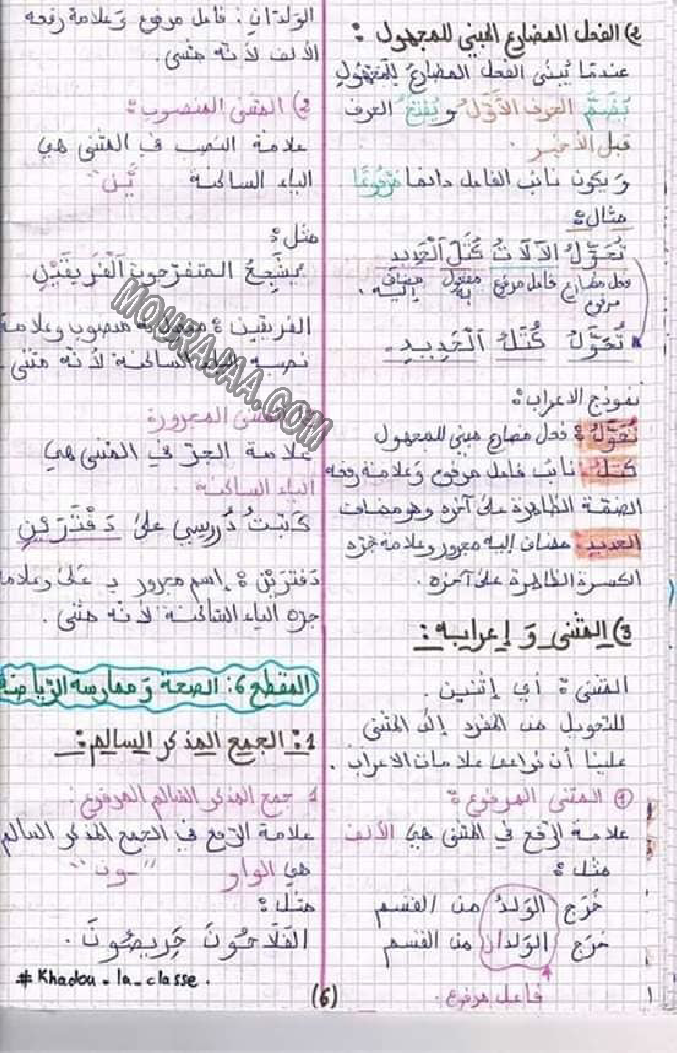 2) الفعل المضارع المبني للمجهول :
عندما يُبنى الفعل المضارع للمجهول
يُضَمُّ الحرف الأَوَّلُ و يُفتحُ الحرف
قبل الأخير.
و يكون نائب الفاعل دائما مرفوعًا
مثال:
تُحَوِّلُ الآلاتُ كُتَلَ الْحَدِيدِ
فعل مضارع مرفوع
فاعل مرفوع
مفعول به
مضاف إليه.
تُحَوَّلُ كُتَلُ الْحَدِيدِ.
نموذج الاعراب:
تُحَوَّلُ: فعل مضارع مبني للمجهول
كتلُ: نائب فاعل مرفوع وعلامة رفعه
الضمة الظاهرة على آخره وهو مضاف
الحديدِ: مضاف إليه مجرور وعلامة جرّه
الكسرة الظاهرة على آخره.
3) المثنى و إعرابه:
المثنى: أي إثنين.
للتحويل من المفرد إلى المثنى
علينا أن نراعي علامات الاعراب.
1 المثنى المرفوع:
علامة الرّفع في المثنى هي الألف
مثل:
خَرَج الولدُ من القسم
خرج الولدان من القسم
فاعل مرفوع.
الولدان: فاعل مرفوع وعلامة رفعه
الألف لأنّه مثنى.
2) المثنى المنصوب:
علامة النصب في المثنى هي
الياء الساكنة "يْن"
مثل:
يُشَجِّعُ المتفرجون الْفَرِيقَيْنِ
الفريقين: مفعول به منصوب وعلامة
نصبه الياء الساكنة لأنّه مثنى
المثنى المجرور:
علامة الجرّ في المثنى هي
الياء الساكنة
كَتَبْتُ دُروسي على دَفْتَرَيْنِ
دَفترَيْن: إسم مجرور بـ على وعلامة
جره الياء السّاكنة لأنّه مثنى.
المقطع 6: الصحة وَ ممارسة الرّياضة
1: الجمع المذكر السالم:
جمع المذكر السّالم المرفوع:
علامة الرّفع في الجمع المذكر السالم
هي الواو "ـون"
مثل:
الفَلَاحُونَ حَرِيصُونَ.
# Khadou - la - classe.
(6)
MOURAJAA.COM